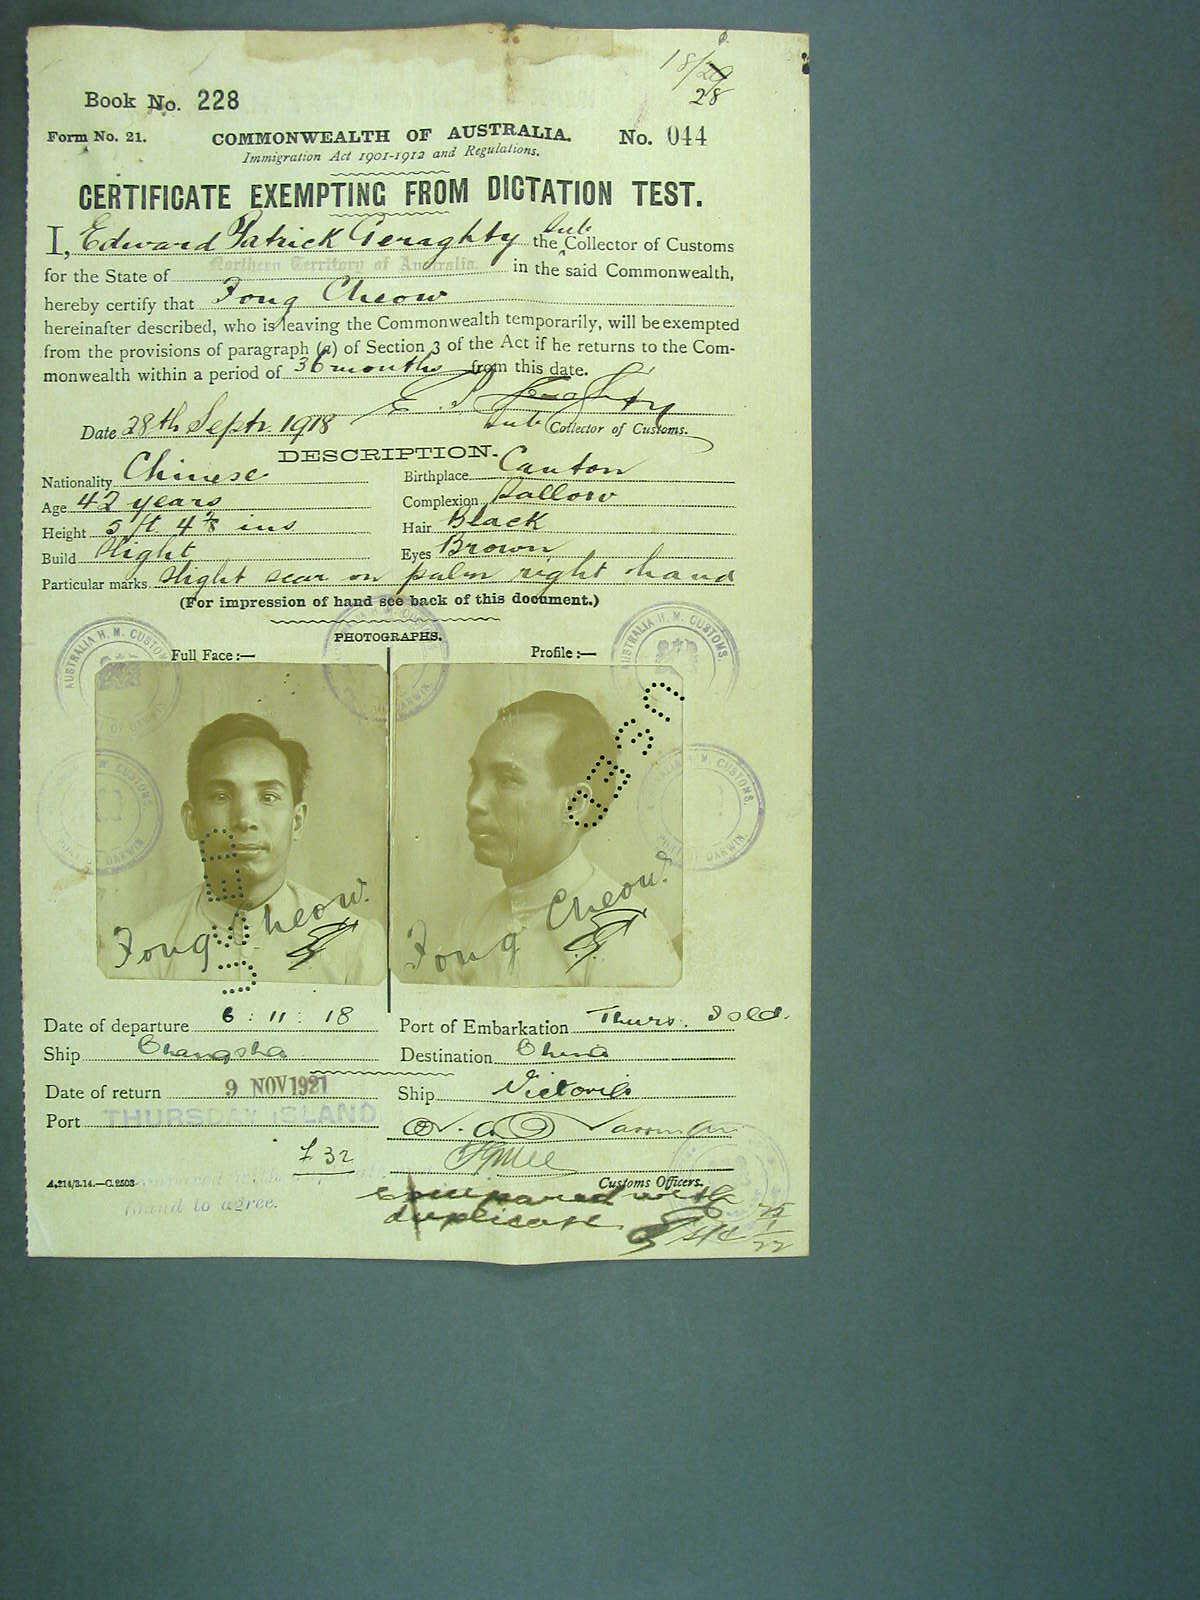 18/28
Book No. 228
Form No. 21. COMMONWEALTH OF AUSTRALIA. No. 044
Immigration Act 1901-1912 and Regulations.
CERTIFICATE EXEMPTING FROM DICTATION TEST.
I, Edward Patrick Geraghty the Sub Collector of Customs
for the State of Northern Territory of Australia. in the said Commonwealth,
hereby certify that Fong Cheow
hereinafter described, who is leaving the Commonwealth temporarily, will be exempted
from the provisions of paragraph (a) of Section 3 of the Act if he returns to the Com-
monwealth within a period of 36 months from this date.
E. P. Geraghty
Date 28th Septr. 1918 Sub Collector of Customs.
DESCRIPTION.
Nationality Chinese Birthplace Canton
Age 42 years Complexion Sallow
Height 5 ft 4 7/8 ins Hair Black
Build Slight Eyes Brown
Particular marks Slight scar on palm right hand
(For impression of hand see back of this document.)
PHOTOGRAPHS.
Full Face:— Profile:—
AUSTRALIA H. M. CUSTOMS. PORT OF DARWIN.
Fong Cheow. Fong Cheow.
Date of departure 6 : 11 : 18 Port of Embarkation Thurs. Isld.
Ship Changsha Destination China
Date of return 9 NOV 1921 Ship Victoria
Port THURSDAY ISLAND
£32
A.214/3.14.—C.2503 Customs Officers.
found to agree.
Compared with
duplicate
25/1/22